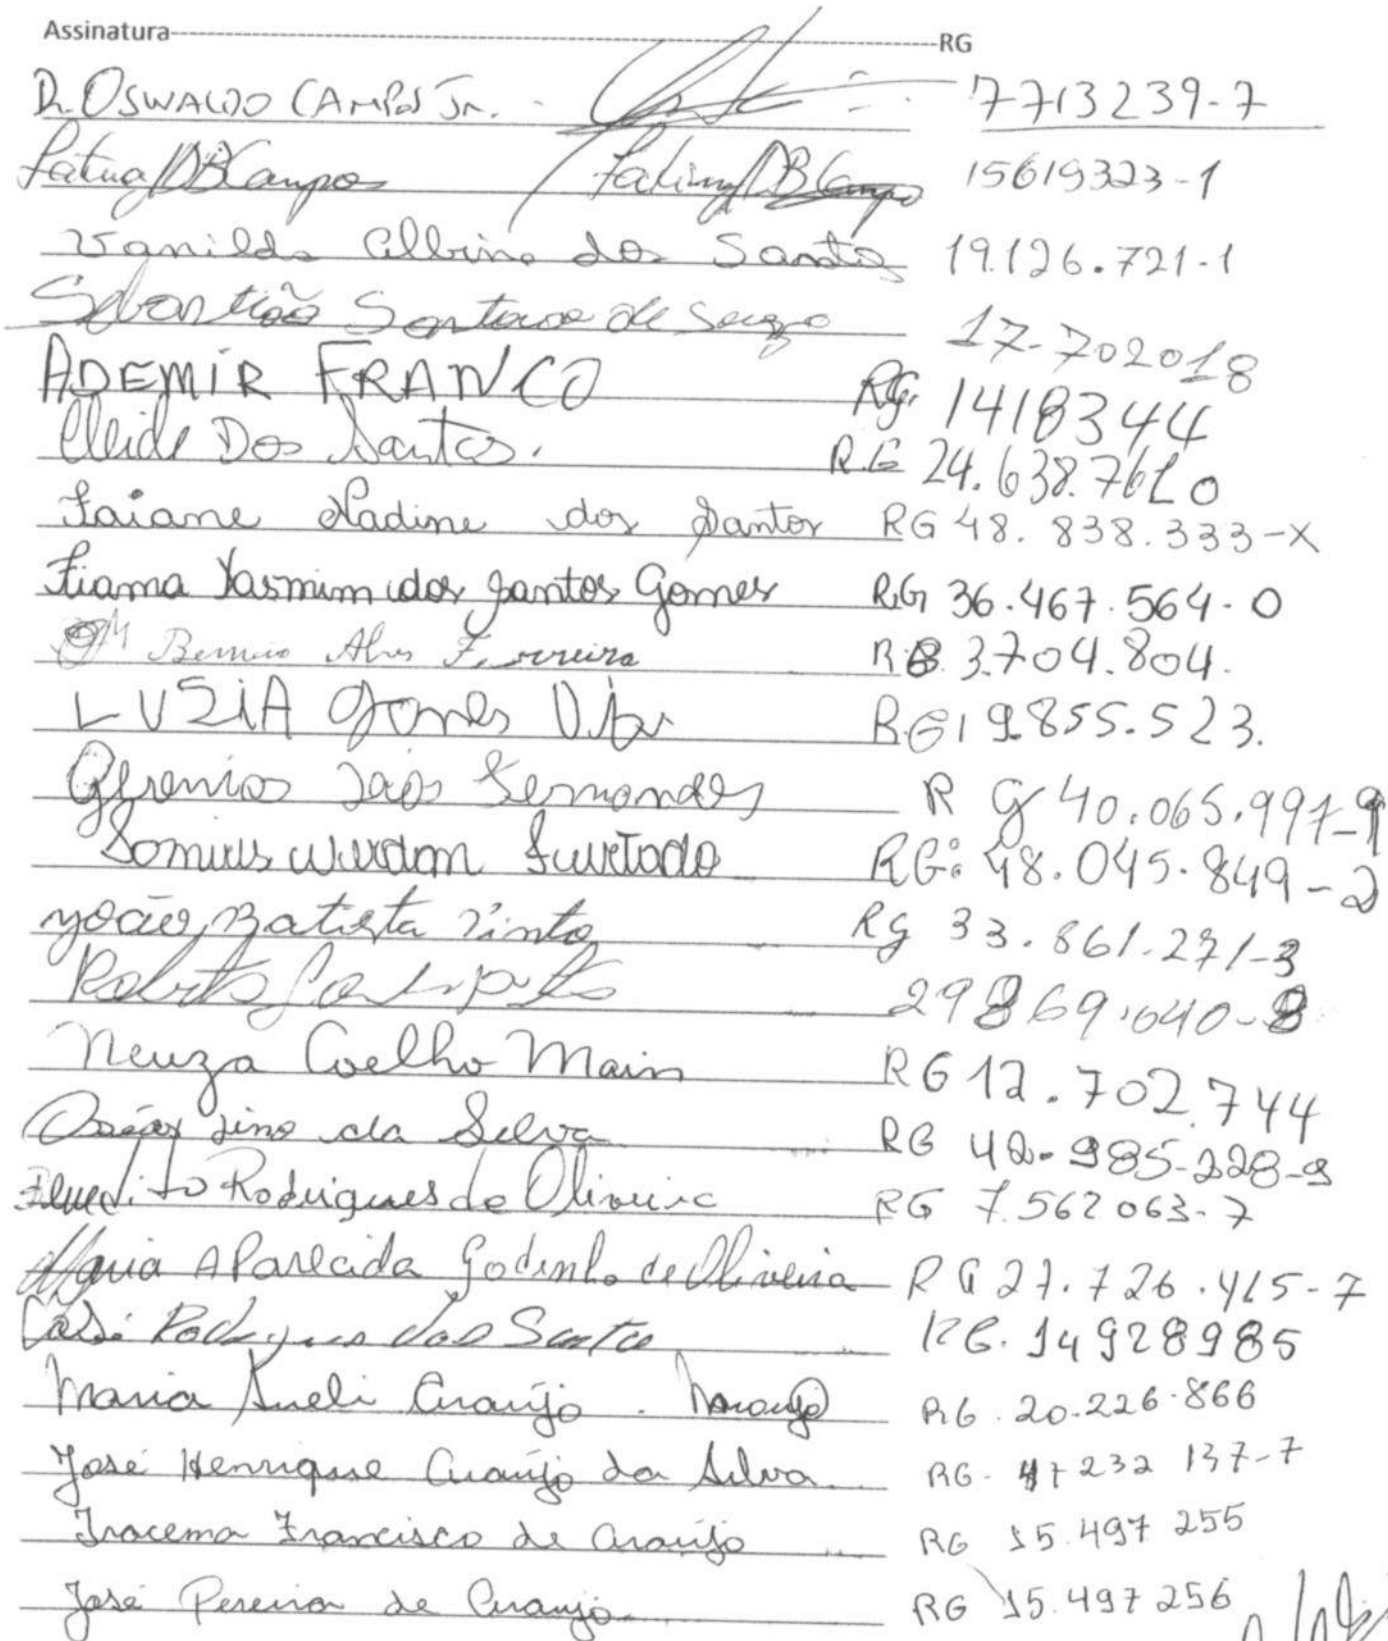 Assinatura-----RG
Dr. OSWALDO CAMPOS Jr. 7713239-7
Fatima DB Campos Fatima DB Campos 15619323-1
Vanilda Albino dos Santos 19.126.721-1
Sebastião Santana de Souza 17-702018
ADEMIR FRANCO RG. 1418344
Cleide Dos Santos. R.G 24.638.761 0
Taiane Nadine dos Santos RG 48. 838.333-X
Tiama Yasmim dos Santos Gomes R.G 36.467.564-0
Alves Ferreira R.G 3.704.804.
LUZIA Gomes R.G 19.855.523.
Fernandes R G 40.065.997-9
Furtado RG: 48.045.849-2
João Batista Pinto Rg 33.861.271-3
Roberto 29869.040-8
Neuza Coelho Marin RG 12.702.744
Lino da Silva RG 42.985-228-9
Benedito Rodrigues de Oliveira RG 7.562063-7
Maria Aparecida Godinho de Oliveira RG 27.726.415-7
Rodrigues dos Santos RG. 14928985
Maria Sueli Araújo. Maraujo RG. 20.226.866
José Henrique Araújo da Silva RG- 47232 137-7
Iracema Francisco de Araújo RG 15.497 255
José Pereira de Araujo RG 15.497 256